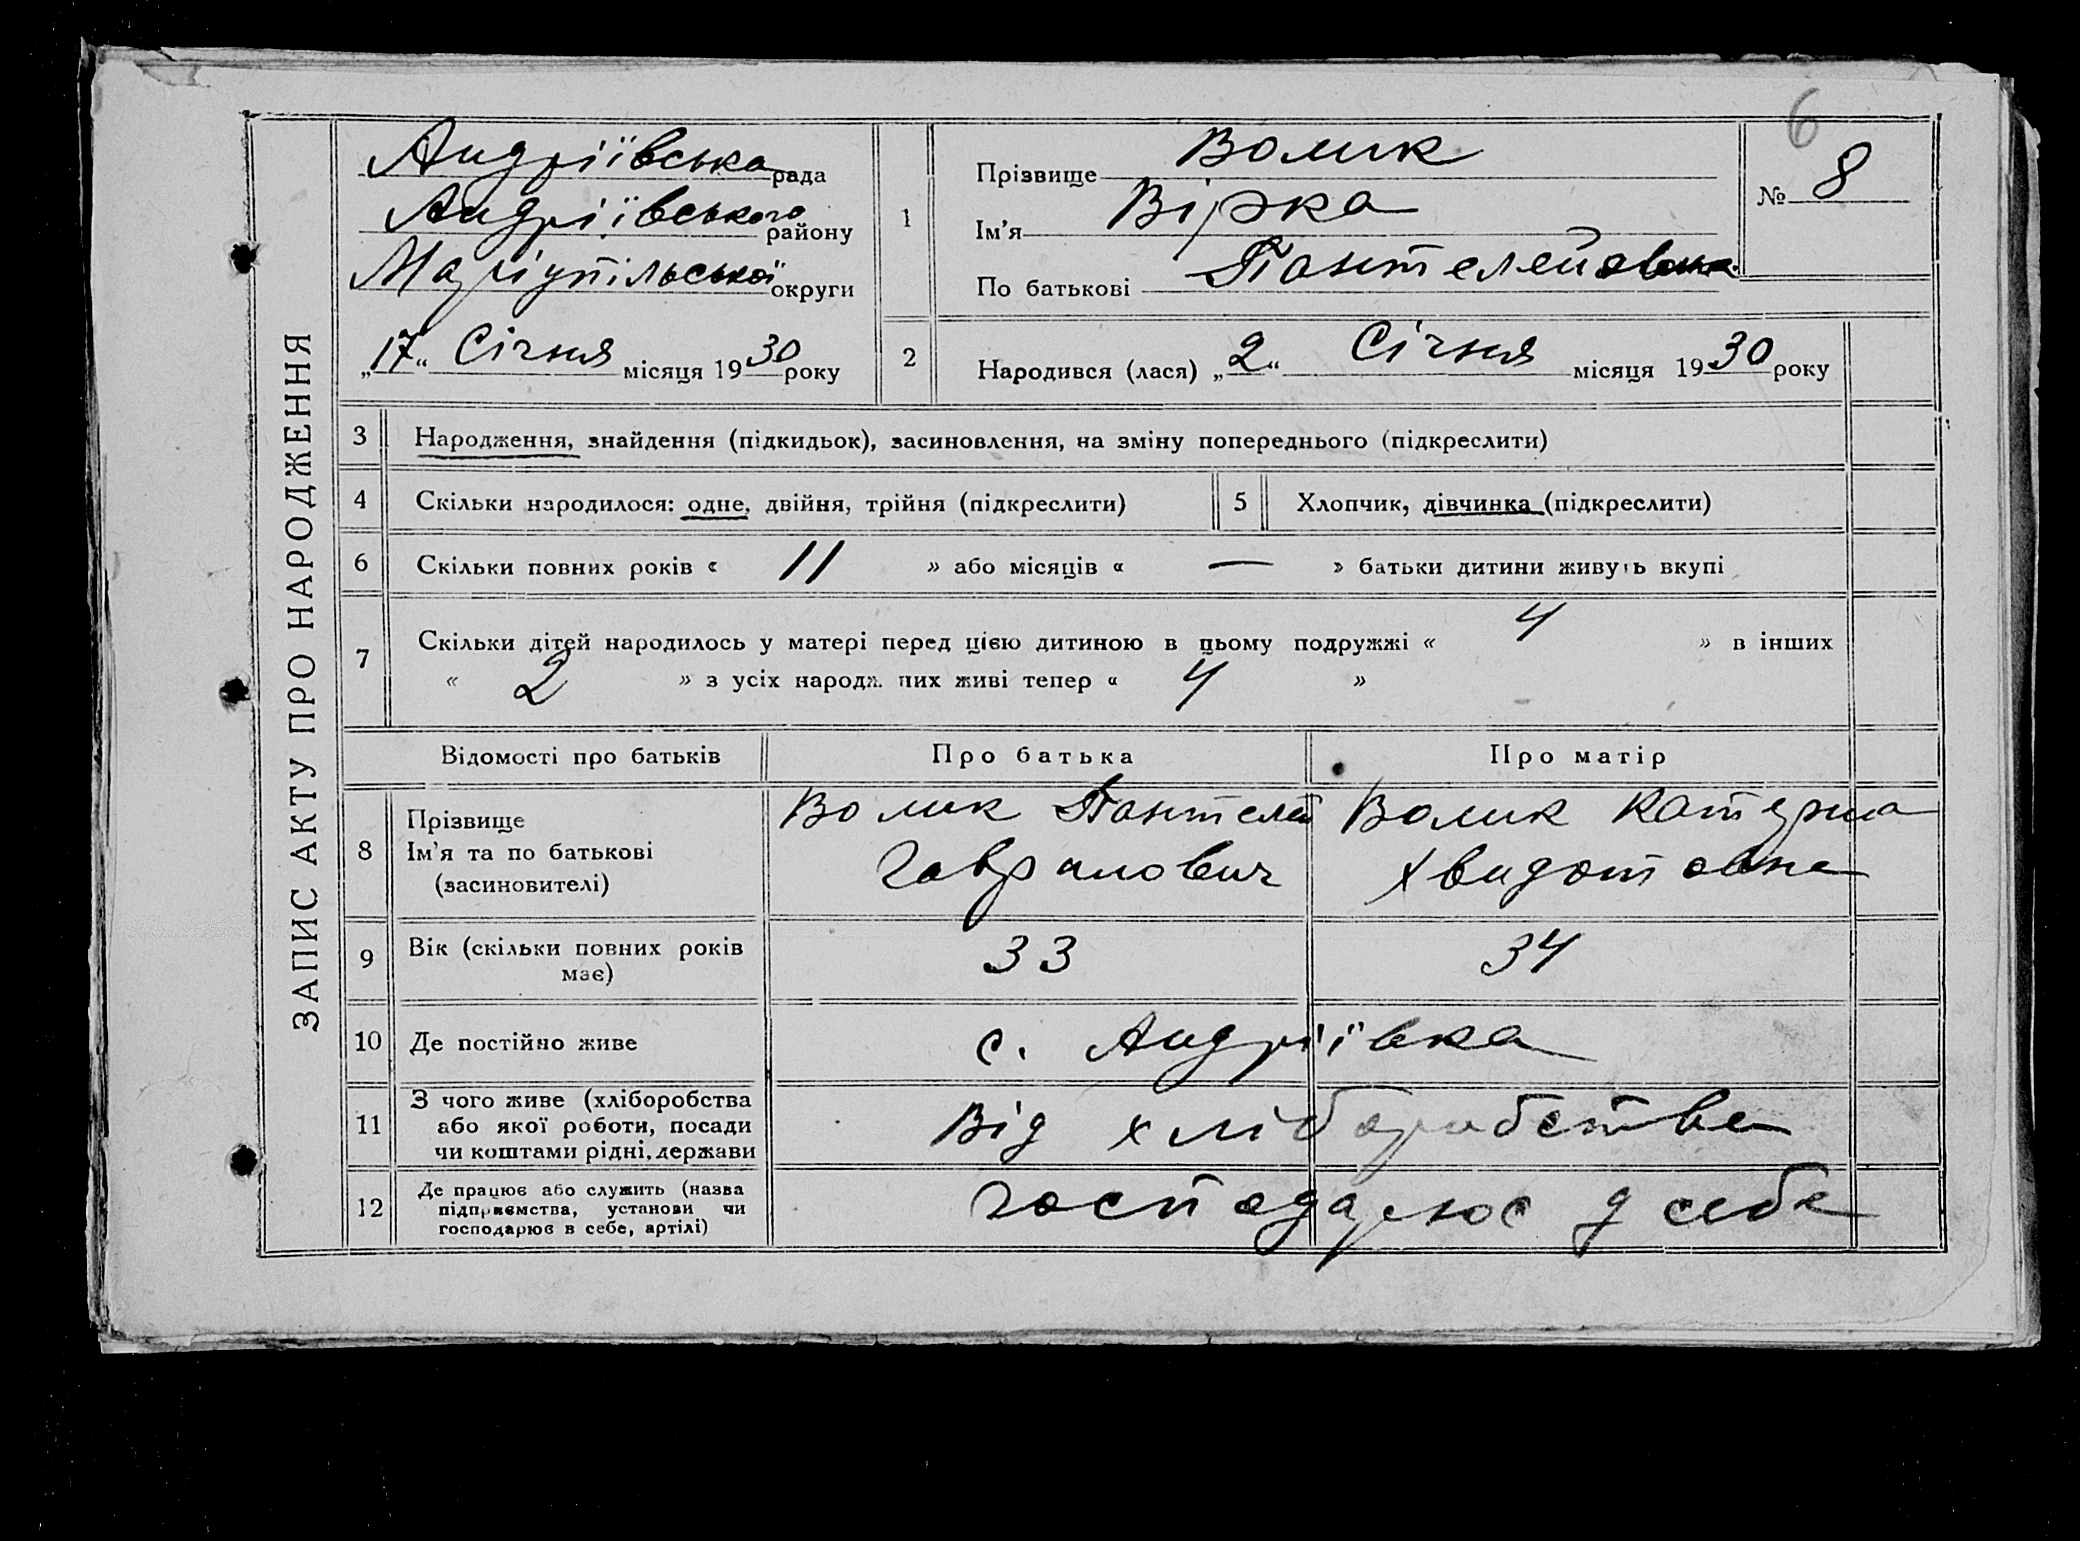 6
ЗАПИС АКТУ ПРО НАРОДЖЕННЯ
Андріївська рада
Андріївського району
Маріупільської округи
„17“ Січня місяця 1930 року
1
Прізвище Волик
Ім'я Вірка
По батькові Пантелейовна
№ 8
2
Народився (лася) „2“ Січня місяця 1930 року
3 Народження, знайдення (підкидьок), засиновлення, на зміну попереднього (підкреслити)
4 Скільки народилося: одне, двійня, трійня (підкреслити) 5 Хлопчик, дівчинка (підкреслити)
6 Скільки повних років « 11 » або місяців « — » батьки дитини живуть вкупі
7 Скільки дітей народилось у матері перед цією дитиною в цьому подружжі « 4 » в інших
« 2 » з усіх народж. них живі тепер « 4 »
Відомості про батьків Про батька Про матір
8 Прізвище
Ім'я та по батькові
(засиновителі)
Волик Пантелей
Гаврилович
Волик Катерина
Хведотовна
9 Вік (скільки повних років
має)
33 34
10 Де постійно живе с. Андріївка
11 З чого живе (хліборобства
або якої роботи, посади
чи коштами рідні, держави
Від хліборобства
12 Де працює або служить (назва
підприємства, установи чи
господарює в себе, артілі)
господарює у себе